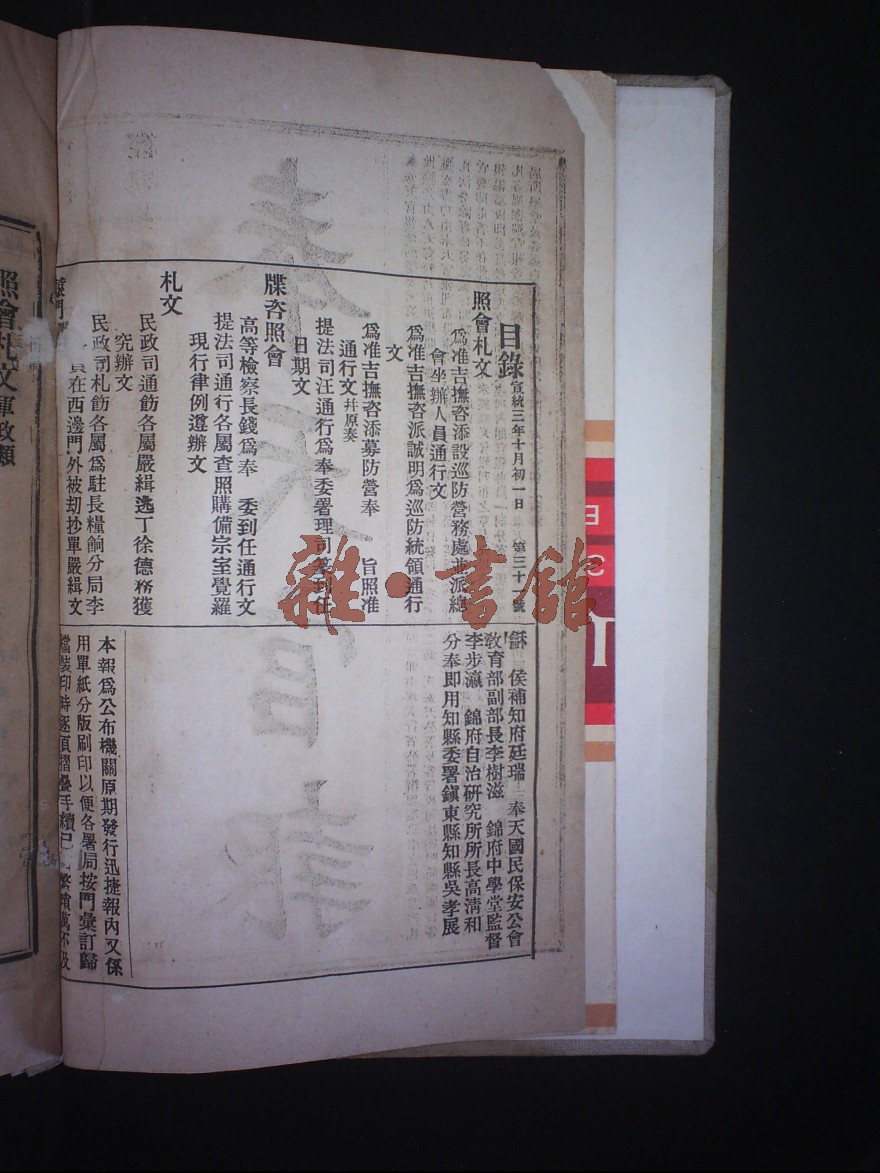 目錄 宣統三年十月初一日 第三十一號
照會札文
為准吉撫咨添設巡防營務處並派總
會坐辦人員通行文
為准吉撫咨派誠明為巡防統領通行
文
為准吉撫咨添募防營奉 旨照准
通行文 并原奏
提法司汪通行為奉委署理司篆到任
日期文
牒咨照會
高等檢察長錢為奉 委到任通行文
提法司通行各屬查照購備宗室覺羅
現行律例遵辦文
札文
民政司通飭各屬嚴緝逃丁徐德務獲
究辦文
民政司札飭各屬為駐長糧餉分局李
在西邊門外被劫抄單嚴緝文
侯補知府廷瑞 奉天國民保安公會
教育部副部長李樹滋 錦府中學堂監督
李步瀛 錦府自治研究所所長高清和
分奉即用知縣委署鎮東縣知縣吳孝展
本報為公布機關原期發行迅捷報內又係
用單紙分版刷印以便各署局按門彙訂歸
檔裝印時逐頁摺疊手續已
照會札文 軍政類
雜·書館